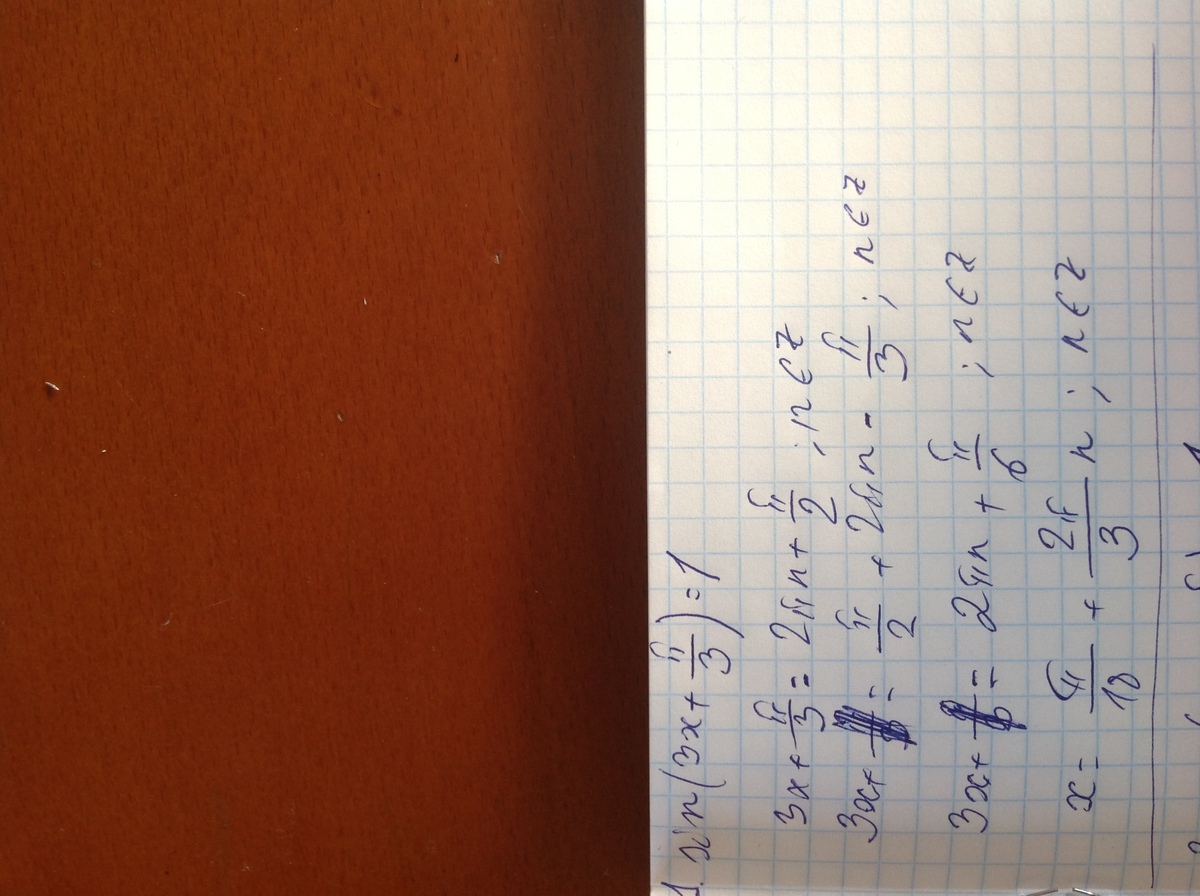 1. sin(3x+π/3)=1
3x+π/3=2πn+π/2; n∈Z
3x+=π/2+2πn-π/3; n∈Z
3x+=2πn+π/6; n∈Z
x=π/18+2π/3n; n∈Z